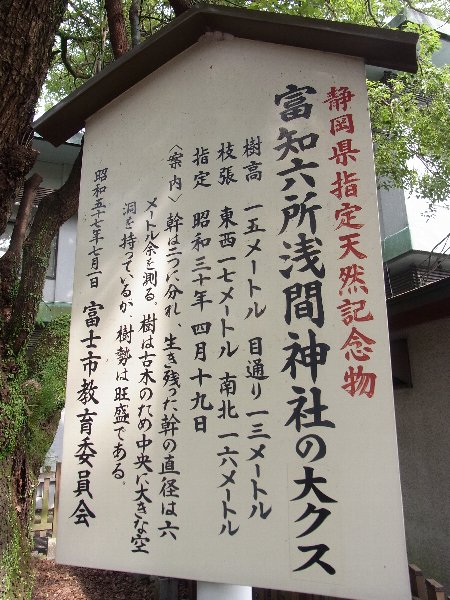 静岡県指定天然記念物
富知六所浅間神社の大クス
樹高 一五メートル 目通り 一三メートル
枝張 東西 一七メートル 南北 一六メートル
指定 昭和三十年四月十九日
〈案内〉幹は二つに分れ、生き残った幹の直径は六
メートル余を測る。樹は古木のため中央に大きな空
洞を持っているが、樹勢は旺盛である。
昭和五十七年七月一日 富士市教育委員会